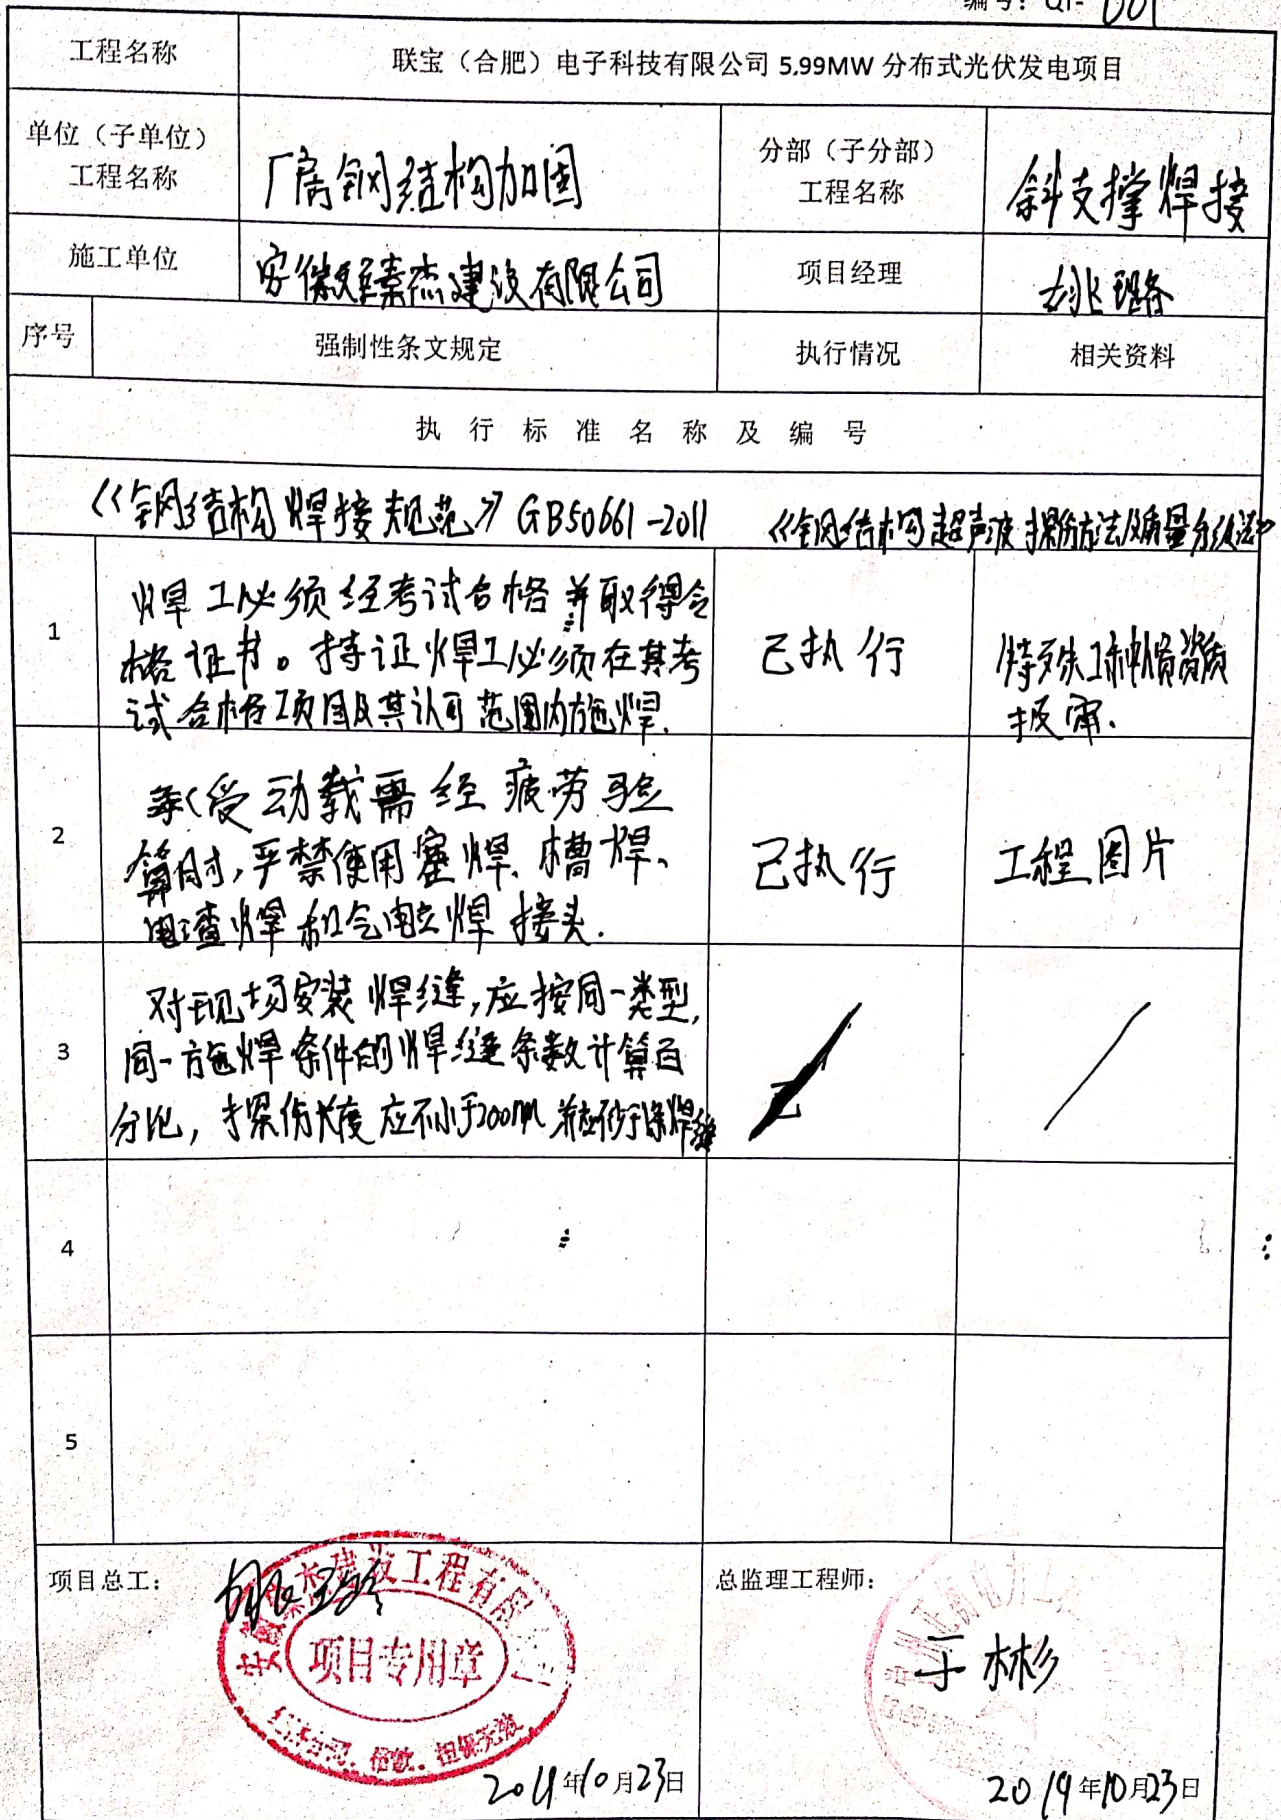 编号：QT- 001
工程名称
联宝（合肥）电子科技有限公司 5.99MW 分布式光伏发电项目
单位（子单位）
工程名称
厂房钢结构加固
分部（子分部）
工程名称
斜支撑焊接
施工单位
安徽臻杰建设有限公司
项目经理
姚璐
序号
强制性条文规定
执行情况
相关资料
执行标准名称及编号
《钢结构焊接规范》GB50661-2011 《钢结构超声波探伤方法及质量分级法》
1
焊工必须经考试合格并取得合
格证书。持证焊工必须在其考
试合格项目及其认可范围内施焊.
已执行
特殊工种人员资质
报审.
2
承受动载需经疲劳验
算时,严禁使用塞焊、槽焊、
电渣焊和气电立焊接头.
已执行
工程图片
3
对现场安装焊缝,应按同一类型,
同一施焊条件的焊缝条数计算百
分比,探伤长度应不小于200mm并应不少于1条焊缝
4
5
项目总工：
建设工程有限
项目专用章
总监理工程师：
于林彬
2019年10月23日
2019年10月23日